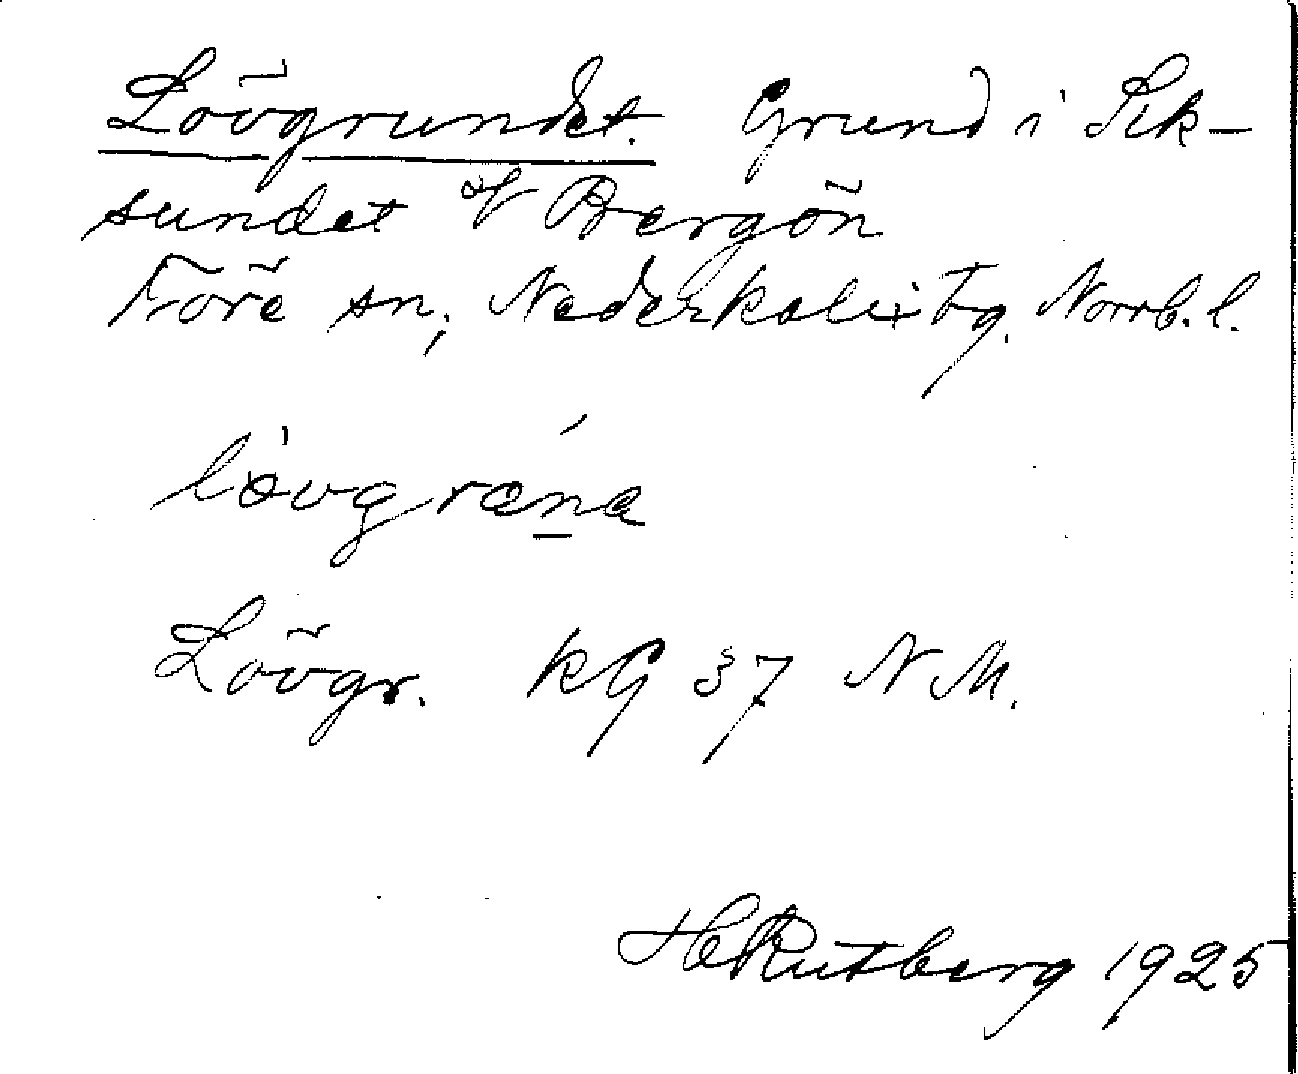 Lövgrundet. Grund i Sik-
sundet v Bergön
Töre sn, Nederkalix tg. Norrb. l.
lövgræna
Lövgr. KG 37 N M.
H Rutberg 1925